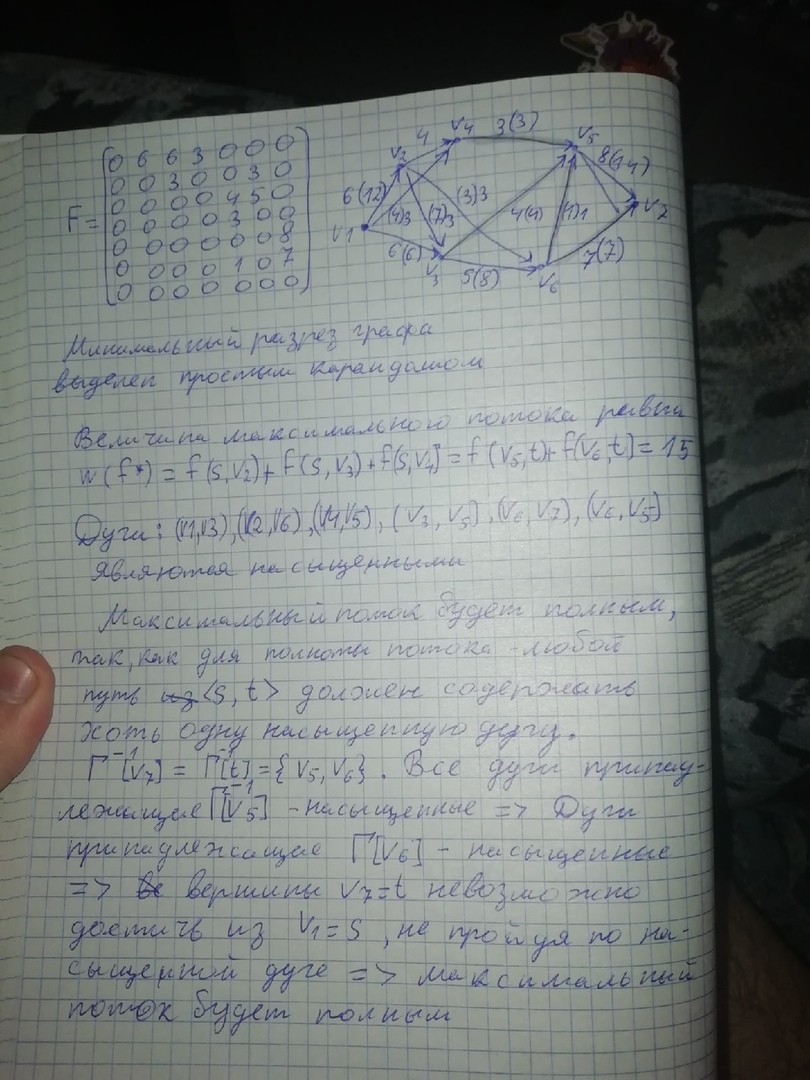 F =
0 6 6 3 0 0 0
0 0 3 0 0 3 0
0 0 0 0 4 5 0
0 0 0 0 3 0 0
0 0 0 0 0 0 8
0 0 0 0 1 0 7
0 0 0 0 0 0 0
4 V4 3(3) V5
V2 8(14)
6(12) (4)3 (7)3 (3)3 4(4) (1)1 V7
V1 6(6) 7(7)
V3 5(8) V6
Минимальный разрез графа
выделен простым карандашом
Величина максимального потока равна
w(f*) = f(s,v2)+f(s,v3)+f(s,v4]=f(v5,t)+f(v6,t]=15
Дуги: (V1,V3),(V2,V6),(V4,V5),(V3,V5),(V6,V7),(V6,V5]
являются насыщенными
Максимальный поток будет полным,
так, как для полноты потока - любой
путь из <s,t> должен содержать
хоть одну насыщенную дугу.
Г⁻¹[V7] = Г⁻¹[t]={V5,V6}. Все дуги принад-
лежащие Г⁻¹[V5] - насыщенные => Дуги
принадлежащие Г[V6] - насыщенные
=> вершины V7=t невозможно
достичь из V1=S, не пройдя по на-
сыщеной дуге => максимальный
поток будет полным